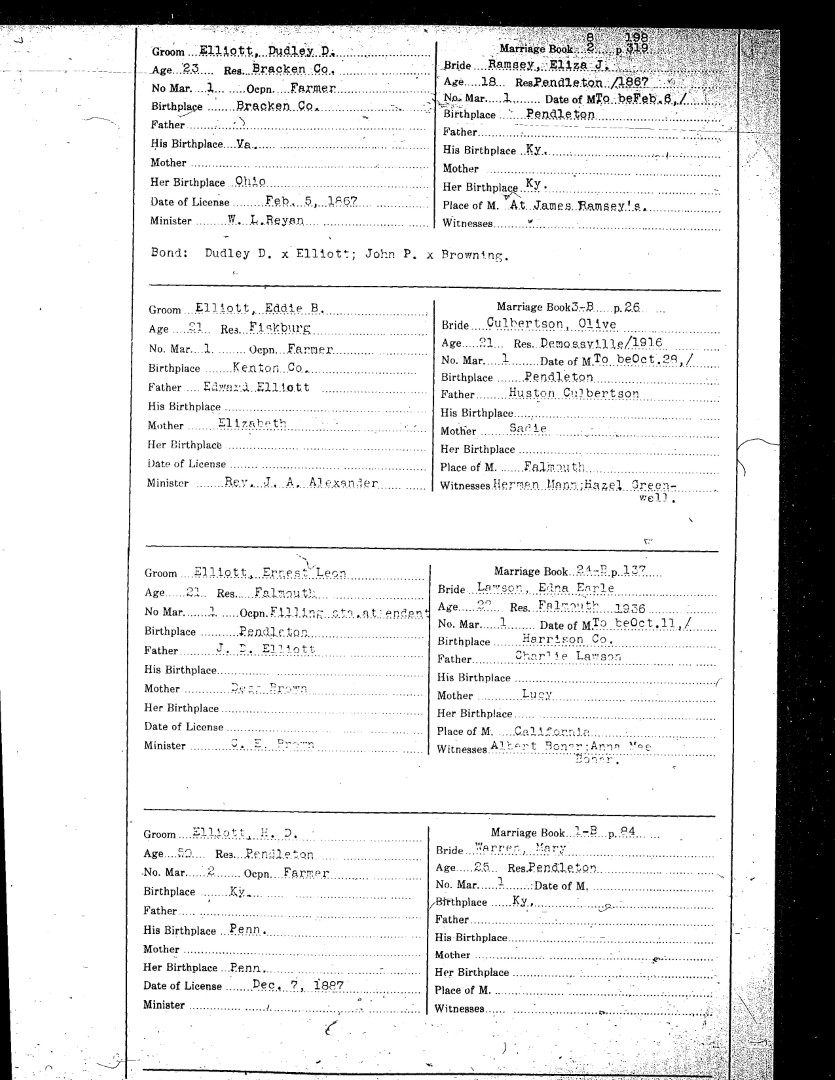 8 198
Groom Elliott, Dudley D. Marriage Book 2 p. 319
Age 23 Res. Bracken Co. Bride Ramsey, Eliza J.
No Mar. 1 Ocpn. Farmer Age 18 Res Pendleton /1867
Birthplace Bracken Co. No. Mar. 1 Date of M To be Feb. 6,/
Father Birthplace Pendleton
His Birthplace Va. Father
Mother His Birthplace Ky.
Her Birthplace Ohio Mother
Date of License Feb. 5, 1867 Her Birthplace Ky.
Minister W. L. Reyan Place of M. At James Ramsey's.
Witnesses
Bond: Dudley D. x Elliott; John P. x Browning.
Groom Elliott, Eddie B. Marriage Book 3-B p. 26
Age 21 Res. Fiskburg Bride Culbertson, Olive
No. Mar. 1 Ocpn. Farmer Age 21 Res. Demossville/1916
Birthplace Kenton Co. No. Mar. 1 Date of M. To be Oct. 28,/
Father Edward Elliott Birthplace Pendleton
His Birthplace Father Huston Culbertson
Mother Elizabeth His Birthplace
Her Birthplace Mother Sadie
Date of License Her Birthplace
Minister Rev. J. A. Alexander Place of M. Falmouth
Witnesses Hermen Mann; Hazel Green-
well.
Groom Elliott, Ernest Leon Marriage Book 24-B p. 137
Age 21 Res. Falmouth Bride Lawson, Edna Earle
No Mar. 1 Ocpn. Filling sta. attendant Age Res. Falmouth 1936
Birthplace Pendleton No. Mar. 1 Date of M. To be Oct. 11,/
Father J. D. Elliott Birthplace Harrison Co.
His Birthplace Father Charlie Lawson
Mother Brown His Birthplace
Her Birthplace Mother Lucy
Date of License Her Birthplace
Minister C. E. Brown Place of M. California
Witnesses Albert Boner; Anna Mae
Boner.
Groom Elliott, H. D. Marriage Book 1-B p. 84
Age 50 Res. Pendleton Bride Warren, Mary
No. Mar. 2 Ocpn. Farmer Age 25 Res. Pendleton
Birthplace Ky. No. Mar. 1 Date of M.
Father Birthplace Ky.
His Birthplace Penn. Father
Mother His Birthplace
Her Birthplace Penn. Mother
Date of License Dec. 7, 1887 Her Birthplace
Minister Place of M.
Witnesses